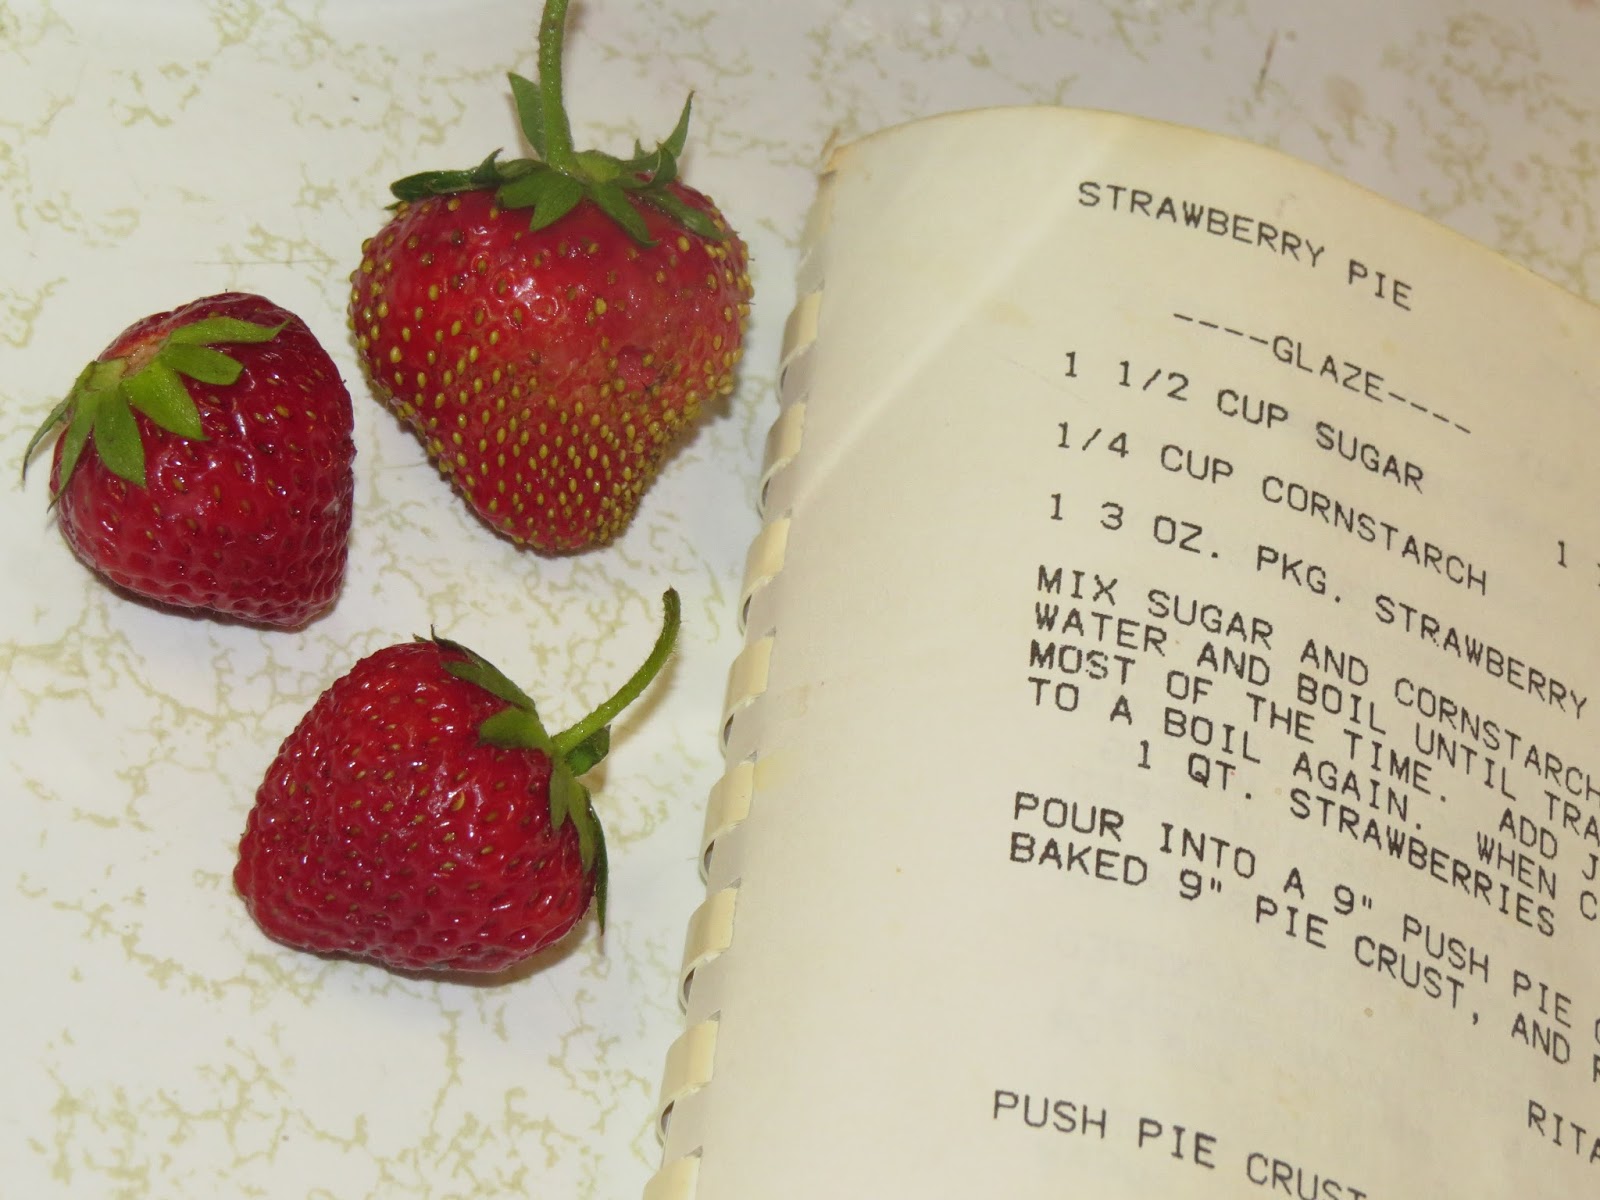 STRAWBERRY PIE
----GLAZE----
1 1/2 CUP SUGAR
1/4 CUP CORNSTARCH 1
1 3 OZ. PKG. STRAWBERRY
MIX SUGAR AND CORNSTARCH
WATER AND BOIL UNTIL TRA
MOST OF THE TIME. ADD J
TO A BOIL AGAIN. WHEN C
1 QT. STRAWBERRIES
POUR INTO A 9" PUSH PIE
BAKED 9" PIE CRUST, AND
RITA
PUSH PIE CRUST